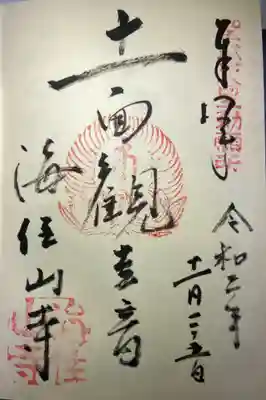 奉拝
令和二年
十一月二十五日
十一面観世音
海住山寺